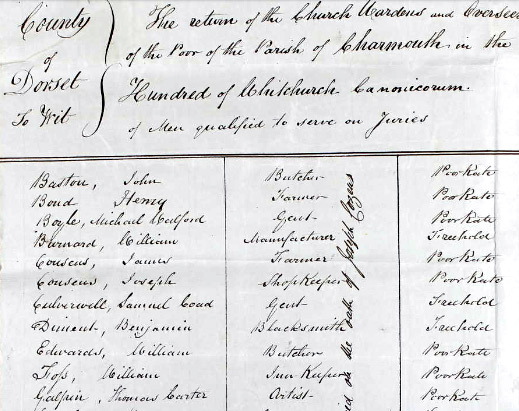 County
of
Dorset
To Wit
The return of the Church Wardens and Oversee
of the Poor of the Parish of Charmouth in the
Hundred of Whitchurch Canonicorum
of Men qualified to serve on Juries
Baston, John Butcher Poor Rate
Bond Henry Farmer Poor Rate
Boyle, Michael Gent Poor Rate
Burnard, William Manufacturer Freehold
Cousens, James Farmer Poor Rate
Cousens, Joseph Shop Keeper Poor Rate
Culverwell, Samuel Coad Gent Freehold
Diment, Benjamin Blacksmith Freehold
Edwards, William Butcher Poor Rate
Foss, William Inn Keeper Poor Rate
Galpin, Thomas Carter Artist Poor Rate
on the oath of Joseph